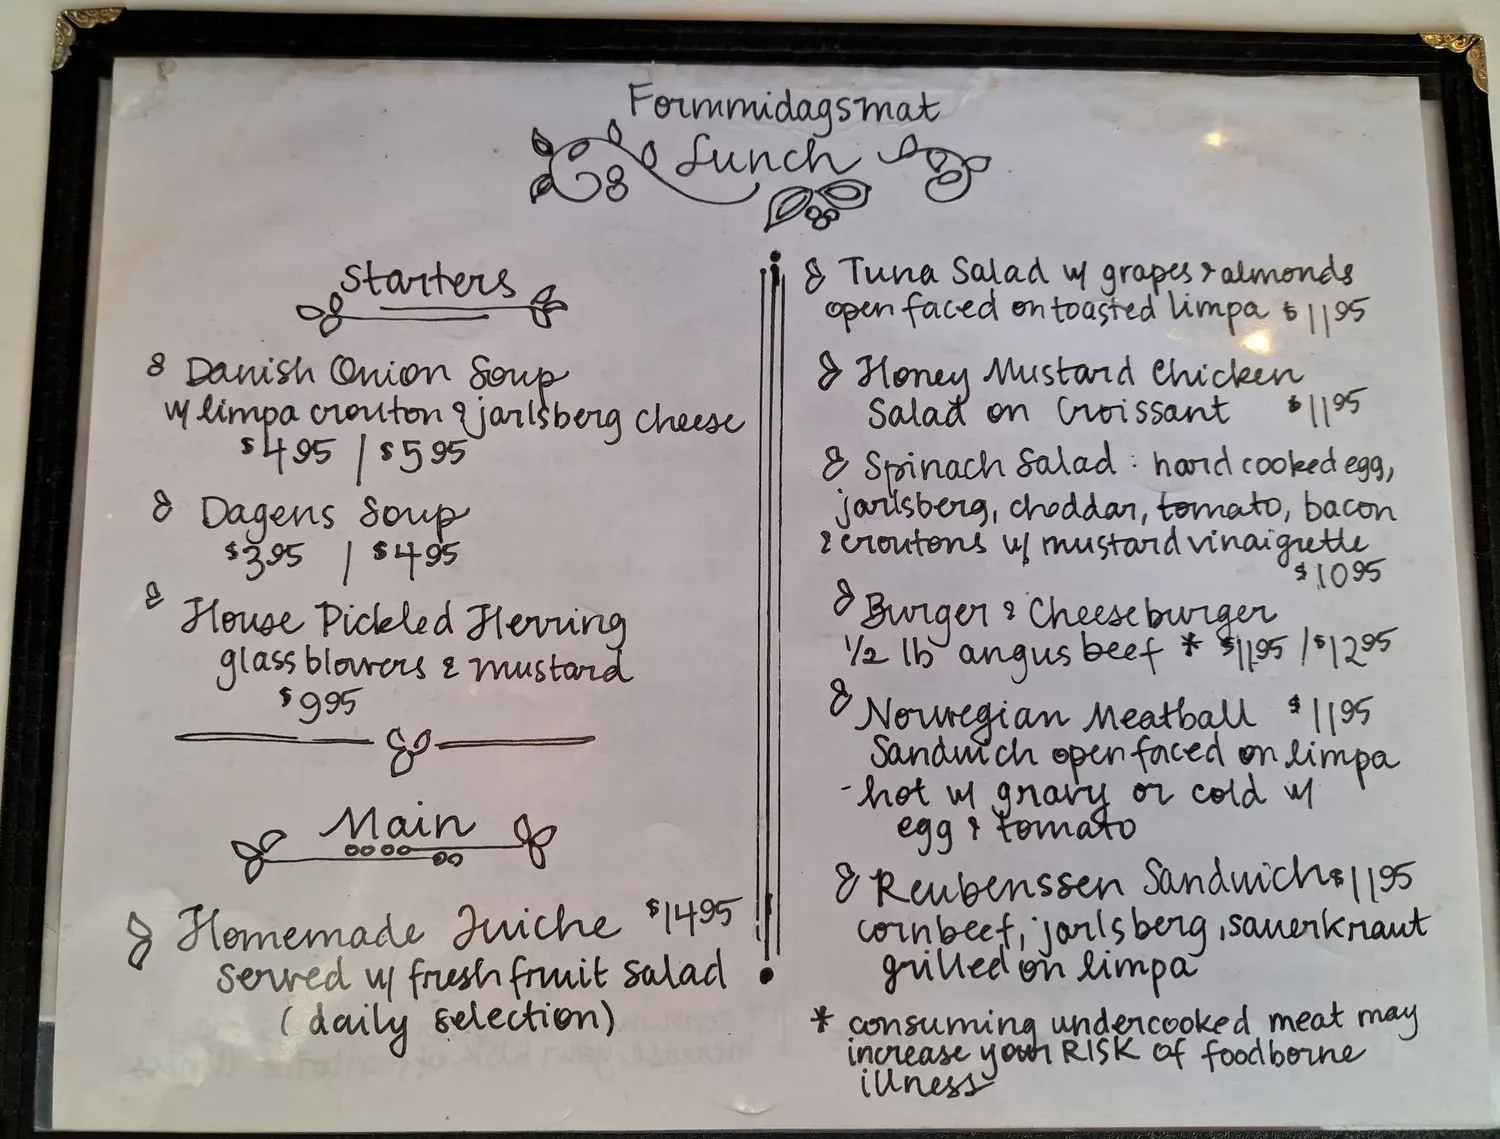 Formmidagsmat
Lunch
Starters
Danish Onion Soup
w/ limpa crouton & jarlsberg cheese
$4.95 / $5.95
Dagens Soup
$3.95 / $4.95
House Pickled Herring
glassblowers & mustard
$9.95
Main
Homemade Quiche $14.95
served w/ fresh fruit salad
(daily selection)
Tuna Salad w/ grapes & almonds
open faced on toasted limpa $11.95
Honey Mustard Chicken
Salad on Croissant $11.95
Spinach Salad: hard cooked egg,
jarlsberg, cheddar, tomato, bacon
& croutons w/ mustard vinaigrette
$10.95
Burger & Cheeseburger
1/2 lb angus beef * $11.95 / $12.95
Norwegian Meatball $11.95
Sandwich open faced on limpa
- hot w/ gravy or cold w/
egg & tomato
Reubenssen Sandwich $11.95
cornbeef, jarlsberg, sauerkraut
grilled on limpa
* consuming undercooked meat may
increase your RISK of foodborne
illness